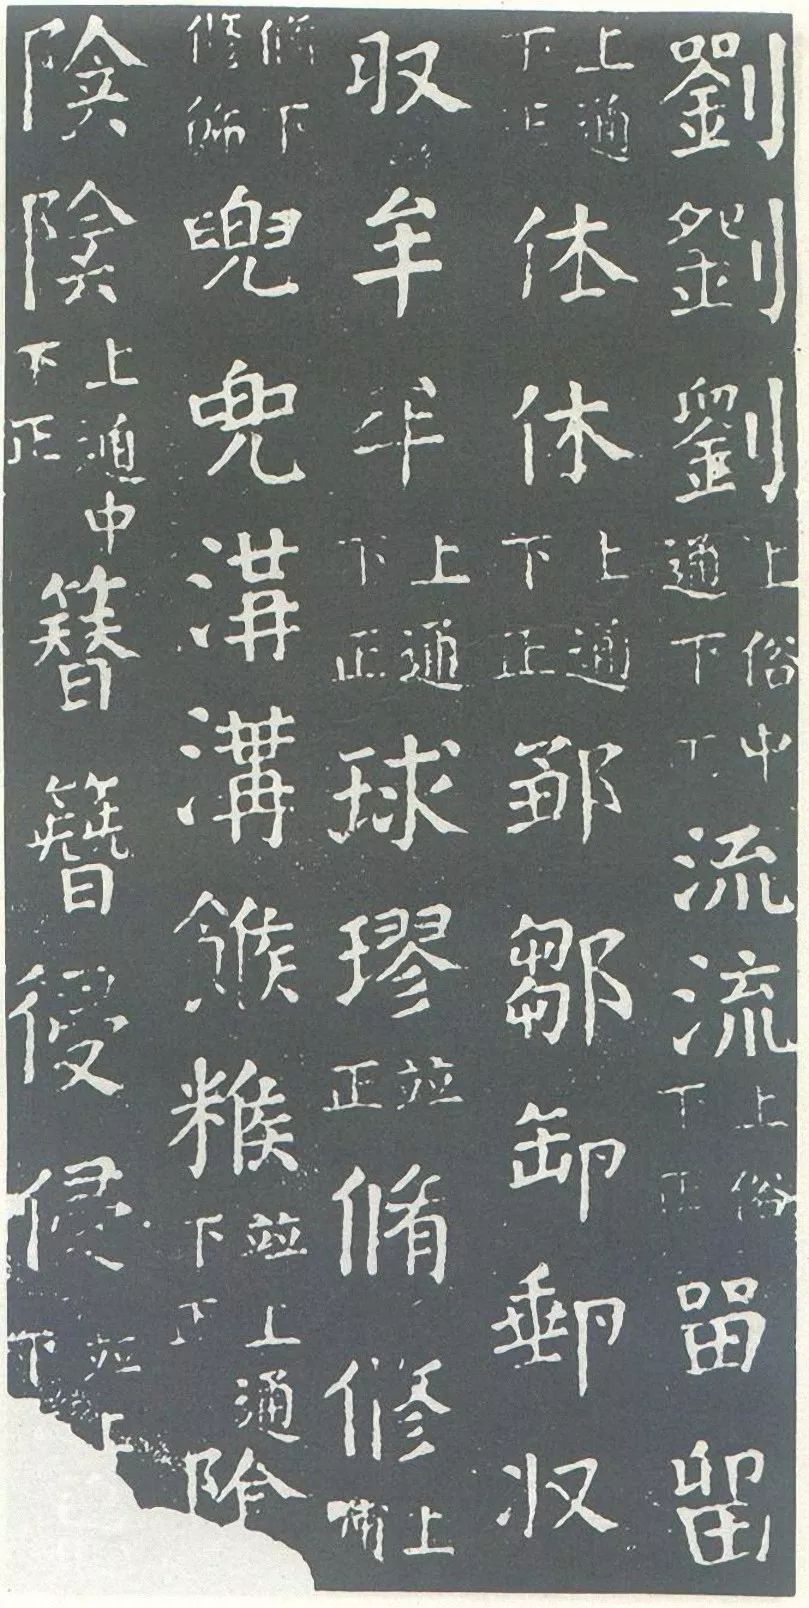 劉劉劉上俗中通下正流流上俗下正畱留
上通下正休休上通下正鄒鄒卸郵収
収牟牟上通下正球璆並正脩修上
脩下修飾兜兜溝溝餱糇並上通下正陰
陰陰上通中下正簪簪侵侵並上下